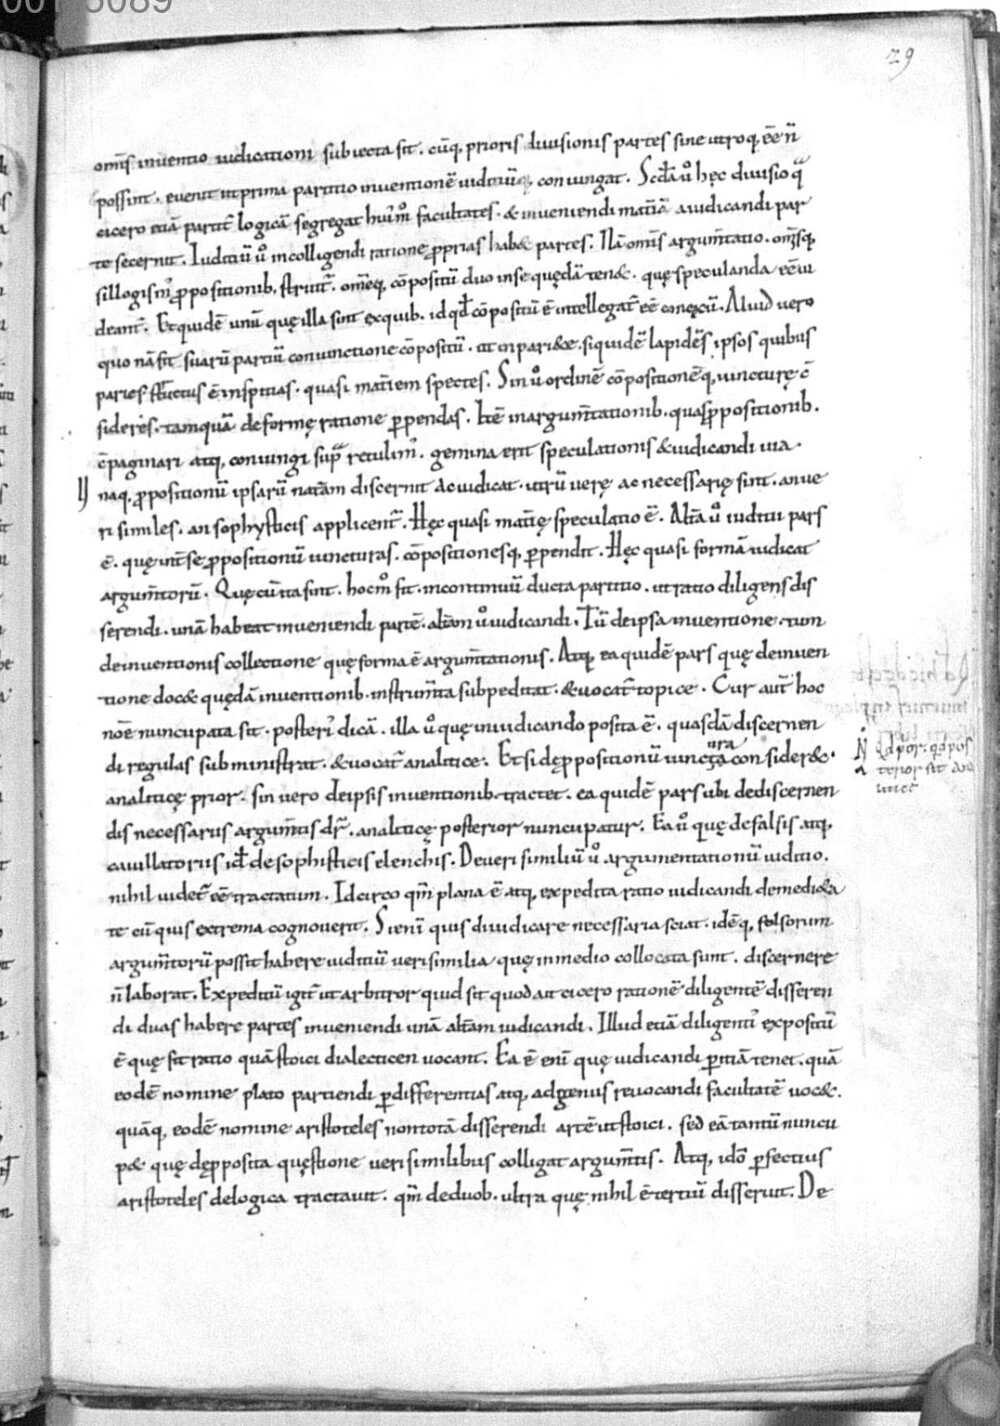 29
omīs inventio iudicationi subiecta sit. cūq, prioris divisionis partes sine utroq, ēē n̄
possint. evenit ut prima partitio inventionē iuditiūq, coniungat. Scďa ů hęc divisio qͣ
cicero etiā partit̄ logicā segregat huim̊ facultates. & inveniendi mat̄iā a iudicandi par
te secernit. Iuditiū ů in colligendi ratione p̄prias hab& partes. Nā omīs argum̄tatio. omīsq,
sillogism' p̄positionib, struit̄. omēq, cōpositū duo in se quędā ten&. quę speculanda ēē vi
deant̄. Et quidē unū quę illa sint ex quib. id qď cōpositū ē intellegat̄ ēē conexū. Aliud vero
quo nā sit suarū partiū coniunctione cōpositū. ut in pari&e. siquidē lapides ipsos quibus
paries structus ē inspitias. quasi mat̄iem spectes. Sin ů ordinē cōpositionēq, iuncturę c̄
sideres. tamquā de formę ratione p̄pendas. Itē in argum̄tationib. quas p̄positionib.
c̄paginari atq, coniungi supͣ retulim'. gemina erit speculationis & iudicandi via.
naq, p̄positionū ipsarū natām discernit ac iudicat. utrū verę ac necessarię sint. an ve
ri similes. an sophysticis applicent̄. Hęc quasi mat̄ię speculatio ē. Alt̄a ů iuditii pars
ē. quę int̄ se p̄positionū iuncturas. cōpositionesq, p̄pendit. Hęc quasi formā iudicat
argum̄torū. Quę cū ita sint. hoc m̊ fit. in continuū ducta partitio. ut ratio diligens dis
serendi. unā habeat inveniendi partē. alt̄am ů iudicandi. Tū de ipsa inventione. tum
de inventionis collectione quę forma ē argum̄tationis. Atq, ea quidē pars quę de inven
tione doc& quędā inventionib. instrum̄ta subpeditat. & vocat̄ topice. Cur aut̄ hoc
nōe nuncupata sit. posteri' dicā. illa ů quę in iudicando posita ē. quasdā discernen
di regulas subministrat. & vocat̄ analitice. Et si de p̄positionū iunctura consider&.
analiticę prior. sin vero de ipsis inventionib. tractet. ea quidē pars ubi de discernen
dis necessariis argum̄tis dr̄. analiticę posterior nuncupatur. Ea ů quę de falsis atq,
cavillatoriis id ē de sophisticis elenchis. De veri similiū ů argumentationū iuditio.
nihil videt̄ ēē tractatum. Idcirco qm̄ plana ē atq, expedita ratio iudicandi de medi&a
te cū quis extrema cognoverit. Si enī quis diiudicare necessaria sciat. idēq, falsorum
argum̄torū possit habere iuditiū verisimilia quę in medio collocata sunt. discernere
n̄ laborat. Expeditū igit̄ ut arbitror quid sit quod ait cicero rationē diligentē disseren
di duas habere partes inveniendi unā alt̄am iudicandi. Illud etiā diligenti' expositū
ē quę sit ratio quā stoici dialecticen vocant. Ea ē enī quę iudicandi p̄itiā tenet. quā
eodē nomine plato partiendi p̄ differentias atq, ad genus revocandi facultatē voc&.
quāq, eodē nomine aristoteles non totā disserendi artē ut stoici. sed eā tantū nuncu
p& quę de p̄posita quęstione verisimilibus colligat argum̄tis. Atq, id̊ p̄fectius
aristoteles de logica tractavit. qm̄ de duob. ultra quę nihil ē tertiū disseruit. De